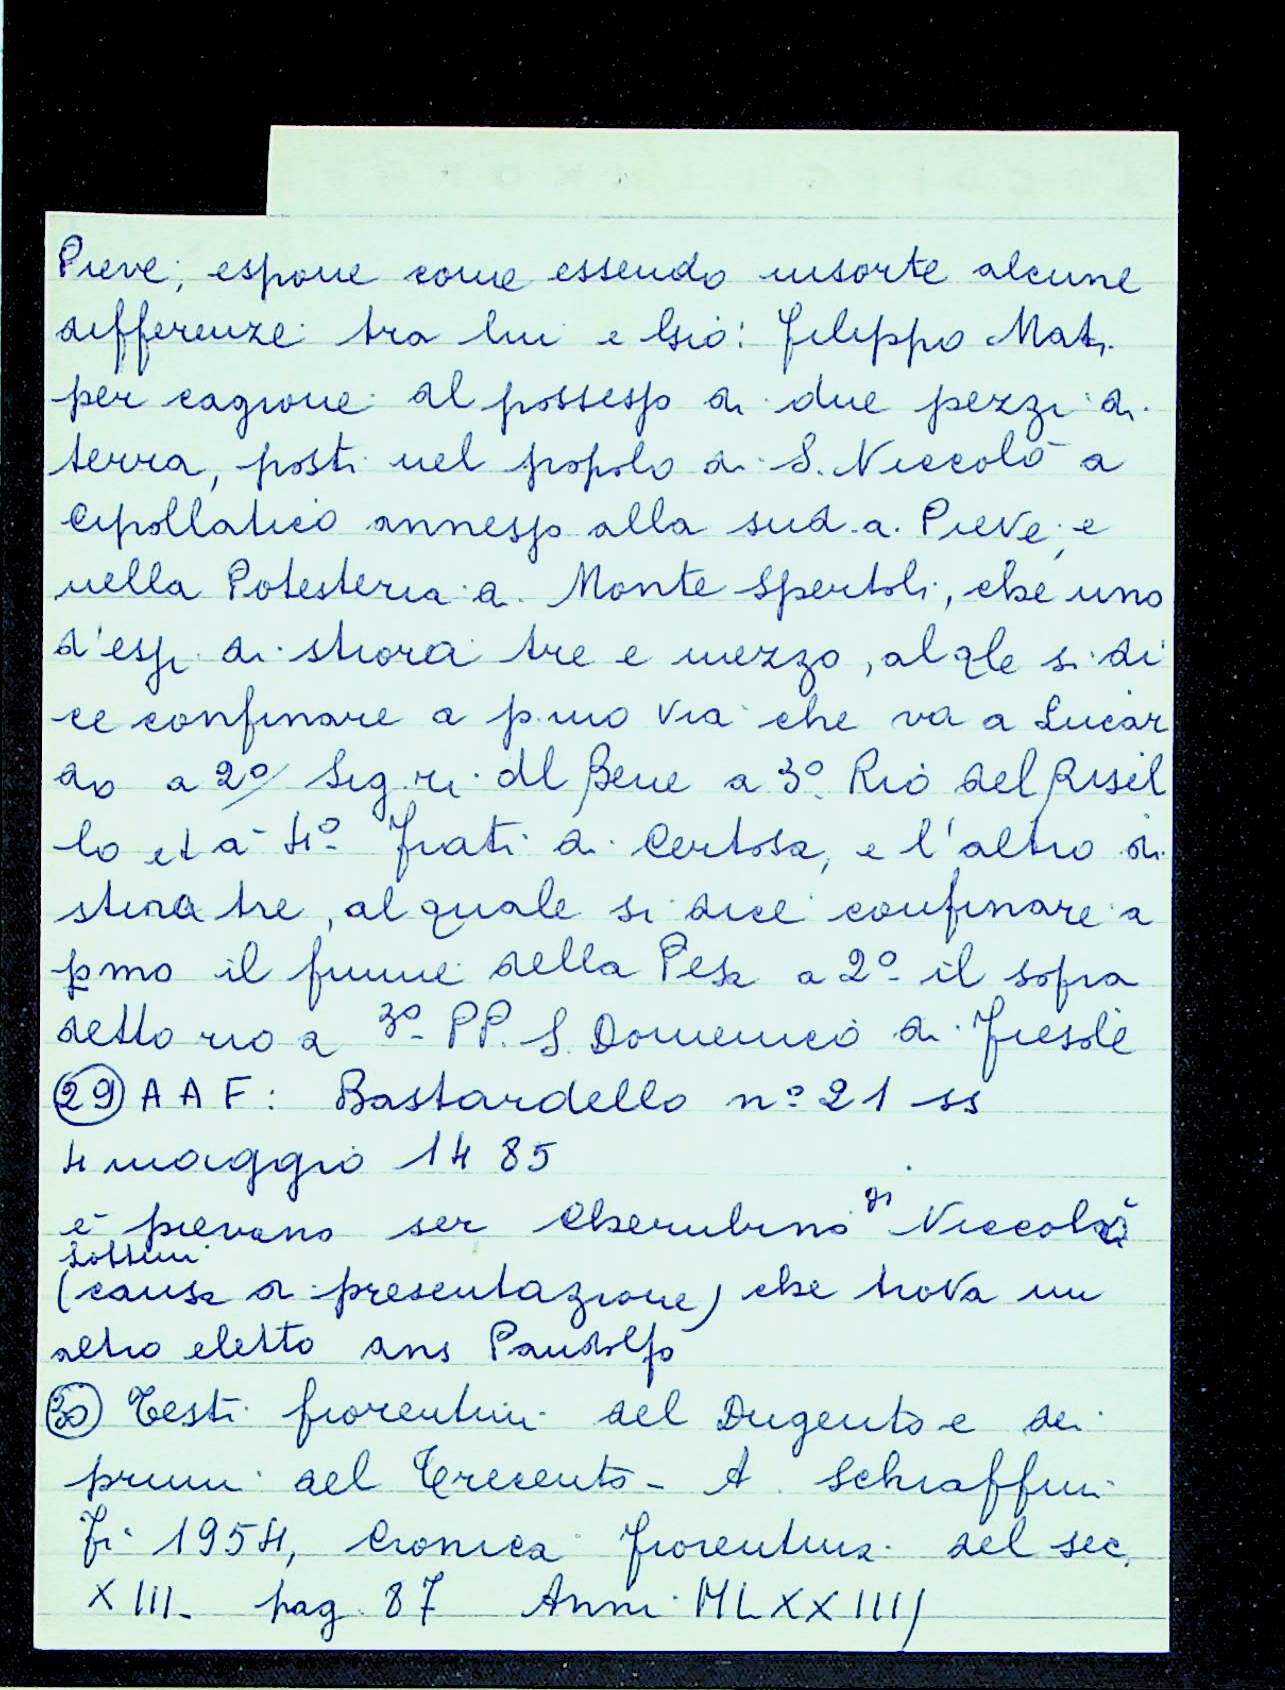 Pieve; espone come essendo insorte alcune
differenze tra lui e Gio: Filippo Mat.
per cagione al possesso di due pezzi di
terra, posti nel popolo di S. Niccolò a
Cipollatico annesso alla sud.a Pieve, e
nella Potesteria a Monte Spertoli, che uno
d'essi di stiora tre e mezzo, al qle si di
ce confinare a p.mo via che va a Lucar
do a 2º Sig.ri dl Bene a 3º Rio del Risil
lo et a 4º Frati di Certosa, e l'altro di
stiora tre, al quale si dice confinare a
pmo il fiume della Pesa a 2º il sopra
detto rio a 3º PP. S. Domenico di Fiesole
29 A A F: Bastardello nº 21 ss
4 maggio 1485
è pievano ser Cherubino di Niccolò
(causa di presentazione) che trova un
altro eletto Pandolfo
30 Testi fiorentini del Dugento e dei
primi del Trecento - A Schiaffini
Fi 1954, Cronica fiorentina del sec.
XIII - pag. 87 Anni MLXXIIII